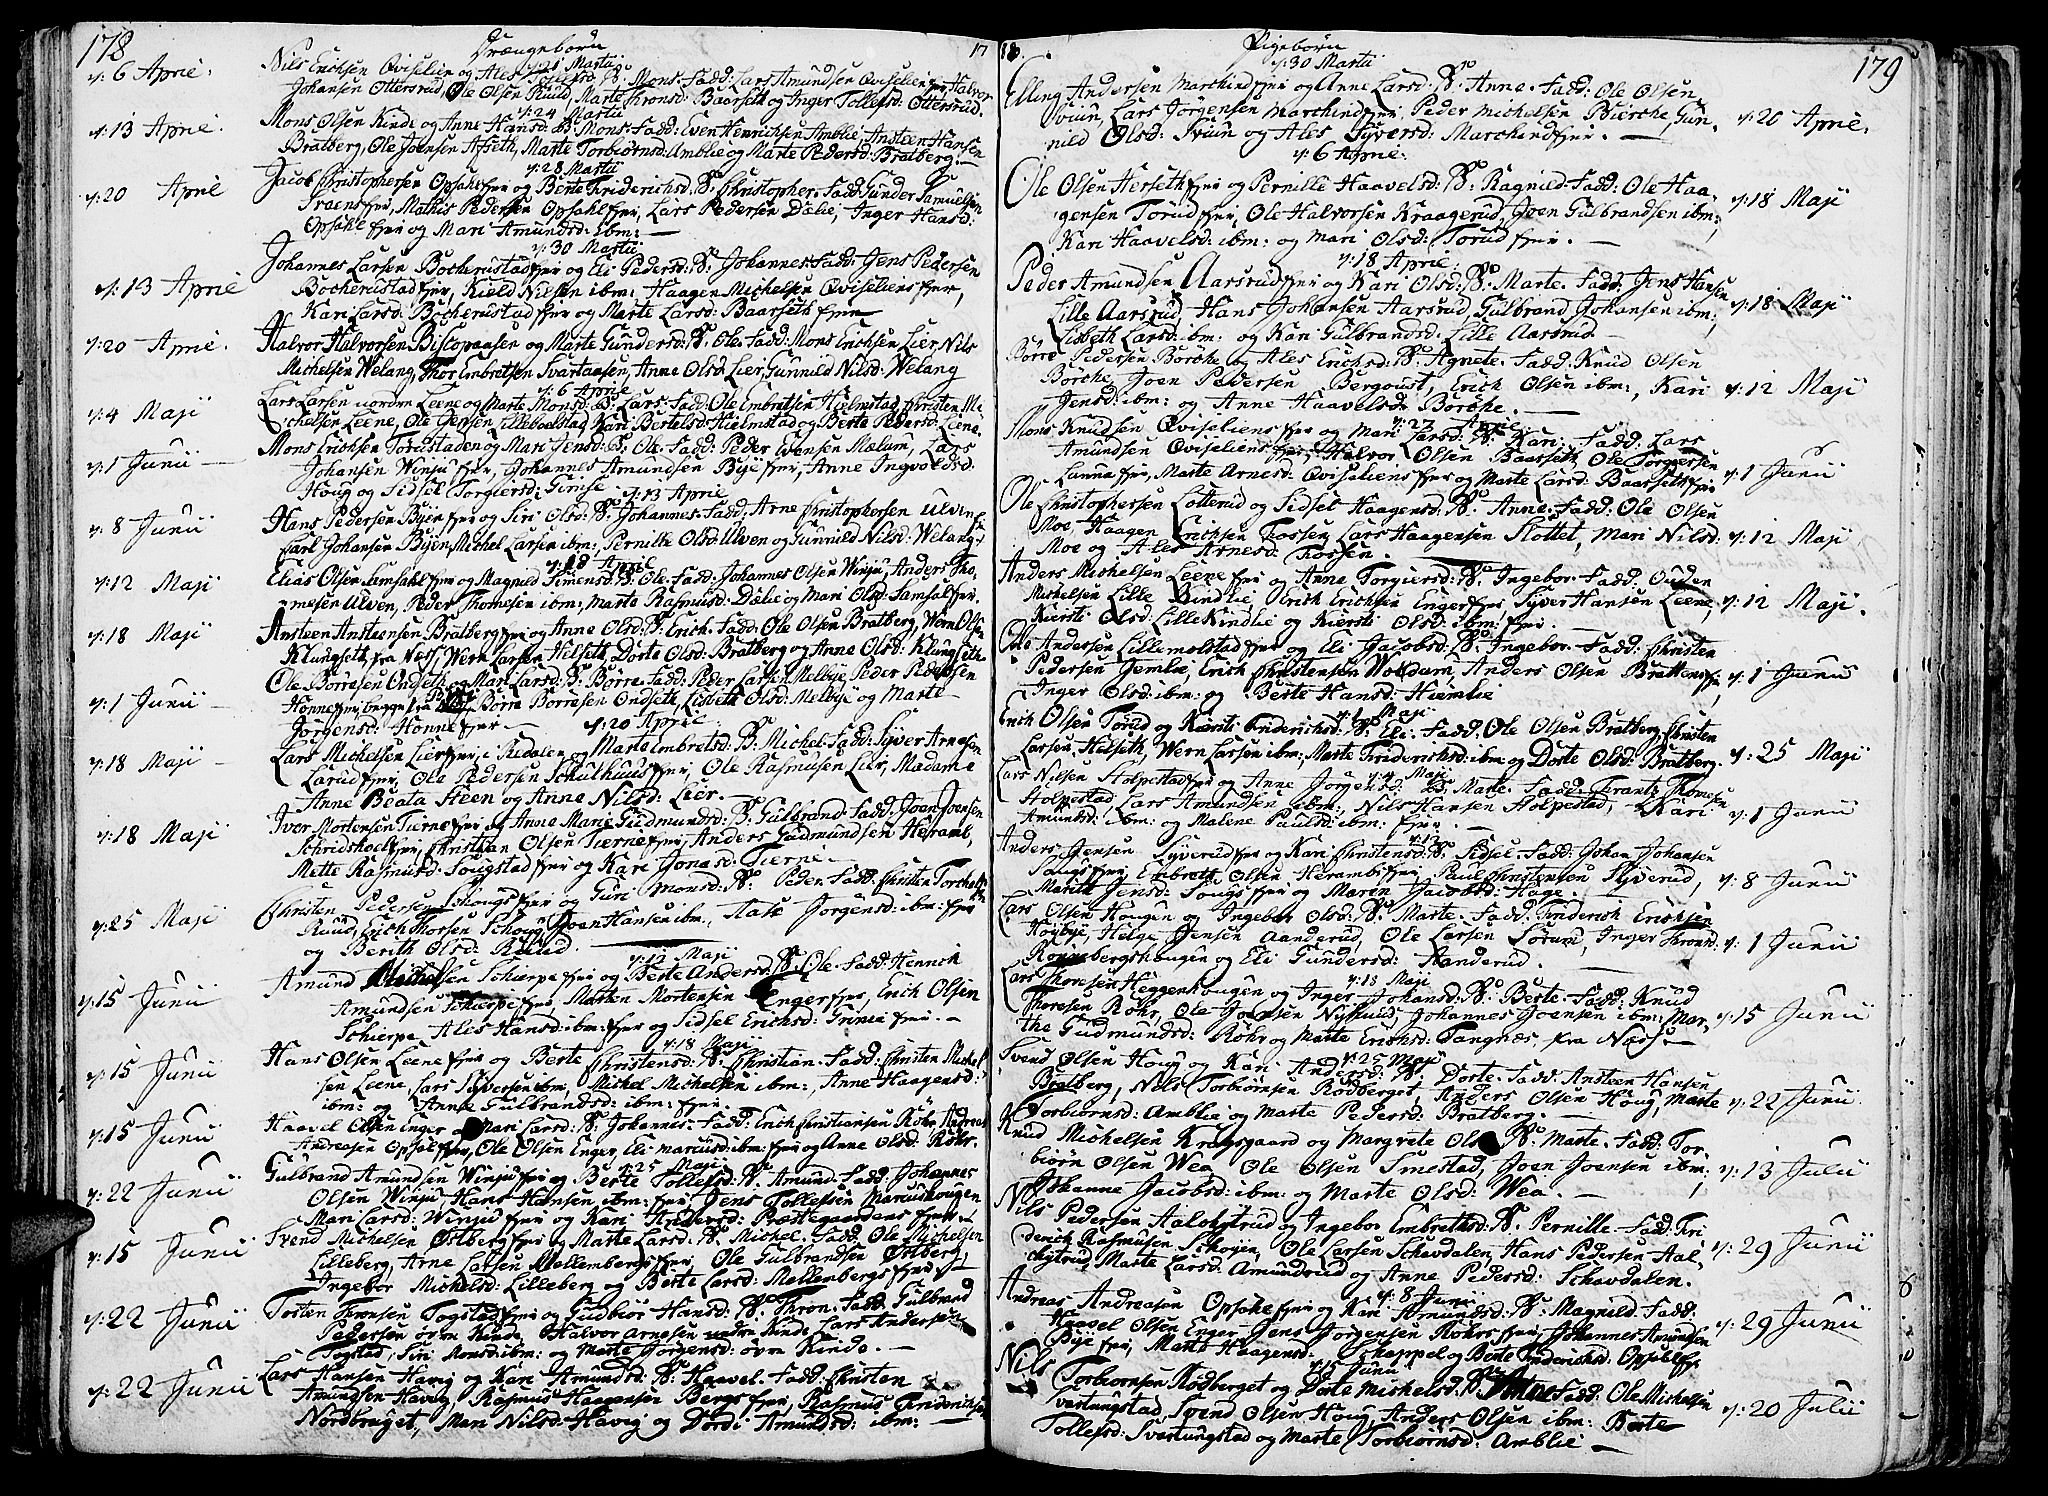 178
Drængebørn
17
d: 6 April. Nils Erichsen Qviselien og Ales Olufsd: B: Mons. Fadd: Lars Amundsen Qviselien fier, Halvor
d: 21 Martii
Johansen Ottersrud, Ole Olsen Ruud, Marte Thronsd: Baarseth og Inger Tollefsd: Ottersrud.
d: 24 Martii
d: 13 April. Mons Olsen Kinde og Anne Hansd: B: Mons. Fadd: Even Henrichsen Amblie, Ansteen Hansen
Bratberg, Ole Joensen Afseth, Marte Torbiørnsd: Amblie og Marte Pedersd: Bratberg.
d: 28 Martii
d: 20 April Jacob Christophersen Opsahl fier og Berte Friderichsd: B: Christopher. Fadd: Gunder Samuelsen
fier, Mathis Pedersen Opsahl fier, Lars Pedersen Dælie, Inger Hansd:
Opsahl fier og Mari Amundsd: ibm:
d: 30 Martii
d: 13 April Johannes Larsen Bocherustad fier og Eli Pedersd: B: Johannes. Fadd: Jens Pedersen
Bocherustad fier, Kield Nilsen ibm: Haagen Michelsen Qviseliens fier,
Kari Larsd: Bocherustad fier og Marte Larsd: Baarseth fier
d: 20 April. Halvor Halvorsen Bistopaasen og Marte Gundersd: B: Ole. Fadd: Mons Erichsen Lier, Nils
Michelsen Welang, Thor Embretsen Svartaasen, Anne Olsd: Lier, Gunnild Nilsd: Welang
d: 6 April
d: 4 Maji Lars Larsen nordre Leene og Marte Monsd: B: Lars. Fadd: Ole Embretsen Hielmstad, Christen Mi-
chelsen Leene, Ole Jensen Lilleboelstad, Kari Bertelsd: Hielmstad og Berte Pedersd: Leene.
d: 1 Junii Mons Erichsen Torustaden og Mari Jensd: B: Ole. Fadd: Peder Evensen Mælum, Lars
Johansen Winju fier, Johannes Amundsen Bye fier, Anne Ingvoldsd:
Houg og Sidsel Torgiersd: Grimse
d: 13 April
d: 8 Junii Hans Pedersen Byen fier og Siri Olsd: B: Johannes. Fadd: Arne Christophersen Ulven
Carl Johansen Byen, Michel Larsen ibm:, Pernille Olsd: Ulven og Gunnild Nilsd: Welang.
d: 18 April
d: 12 Maji Elias Olsen Lamsahl fier og Magnild Simensd: B: Ole. Fadd: Johannes Olsen Winju, Anders Tho-
mesen Ulven, Peder Thomesen ibm:, Marte Rasmusd: Dælie og Mari Olsd: Samsal fier.
d: 18 Maji Ansteen Ansteensen Bratberg fier og Anne Olsd: B: Erich. Fadd: Ole Olsen Bratberg, Wern Olsen
Klungseth fra Næss, Wern Larsen Helseth, Dorte Olsd: Bratberg og Anne Olsd: Klungseth
d: 1 Junii Ole Børresen Ondseth og Mari Larsd: B: Børre. Fadd: Peder Larsen Melbye, Peder Pedersen
Honne fier, begge fra Børre Børresen Ondseth, Lisbeth Olsd: Melbye og Marte
Jørgensd: Honne fier
d: 20 April
d: 18 Maji Lars Michelsen Lier fier i Redalen og Marte Embretsd: B: Michel. Fadd: Syver Arnesen
Larud fier, Ole Pedersen Schulhuus fier, Ole Rasmusen Lier, Madame
Anne Beata Steen og Anne Nilsd: Lier.
d: 18 Maji Iver Mortensen Tierne fier og Anne Marie Gudmundsd: B: Gulbrand. Fadd: Joen Joensen
Schridshoel fier, Christian Olsen Tierne fier, Anders Gudmundsen Heramb,
Mette Rasmusd: Sougstad fier og Kari Jonasd: Tierne
d: 25 Maji Christen Pedersen Schougs fier og Guri Monsd: B: Peder. Fadd: Christen Torchels
Ruud, Erich Thorsen Schoug, Joen Hansen ibm:, Aase Jørgensd: ibm: fier
og Berith Olsd: Ruud.
d: 12 Maji
d: 15 Junii Amund Michelsen Schierpe fier og Berte Andersd: B: Ole. Fadd: Henrich
Amundsen Schierpe fier, Marten Mortensen Enger fier, Erich Olsen
Schierpe, Ales Hansd: ibm: fier og Sidsel Erichsd: Grimse fier.
d: 18 Maji
d: 15 Junii Hans Olsen Leene fier og Berte Christensd: B: Christian. Fadd: Christen Michel
sen Leene, Lars Syversen ibm, Michel Michelsen ibm:, Anne Haagensd:
ibm: og Anne Gulbrandsd: ibm: fier.
d: 15 Junii Haavel Olsen Enger og Mari Larsd: B: Johannes. Fadd: Erich Christiansen Röhr, Andreas
Andreasen Opsal fier, Ole Olsen Enger, Eli Marcusd: ibm: fier og Anne Olsd: Röhr.
d: 25 Maji
d: 22 Junii Gulbrand Amundsen Winju fier og Berte Tollefsd: B: Amund. Fadd: Johannes
Olsen Winju, Hans Hansen ibm: fier, Jens Tollefsen Marcushougen
Mari Larsd: Winju fier og Kari Andersd: Præstegaardens fier
d: 15 Junii Svend Michelsen Østberg fier og Marte Larsd: B: Michel. Fadd: Ole Michelsen
Lilleberg, Arne Larsen Mellenbergs fier, Ole Gulbrandsen Østberg,
Ingebor Michelsd: Lilleberg og Berte Larsd: Mellenbergs fier.
d: 22 Junii Torsten Thronsen Togstad fier og Gudbior Hansd: B: Thron. Fadd: Gulbrand
Pedersen øvre Kinde, Halvor Arnesen nedre Kinde, Lars Andersen
Togstad, Siri Monsd: ibm: og Marte Jørgensd: øvre Kinde.
d: 22 Junii Lars Hansen Havig og Kari Amundsd: B: Haavel. Fadd: Christen
Amundsen Havig, Rasmus Haagensen Bergs fier, Rasmus Friderichsen
Nordbraget, Mari Nilsd: Havig og Dordi Amundsd: ibm:
18.
Pigebørn
179
d: 30 Martii
Elling Andersen Marchind fier og Anne Larsd: B: Anne. Fadd: Ole Olsen
Sviun, Lars Jørgensen Marchind fier, Peder Michelsen Bierche, Gun- d: 20 April.
nild Olsd: Sviun og Ales Syversd: Marchind fier.
d: 6 April.
Ole Olsen Herseth fier og Pernille Haavelsd: B: Ragnild. Fadd: Ole Haa-
gensen Torud fier, Ole Halvorsen Kraagerud, Joen Gulbrandsen ibm: d: 18 Maji
Kari Haavelsd: ibm: og Mari Olsd: Torud fier.
d: 18 April.
Peder Amundsen Aarsrud fier og Kari Olsd: B: Marte. Fadd: Jens Hansen
Lille Aarsrud, Hans Johansen Aarsrud, Gulbrand Johansen ibm: d: 18 Maji
Lisbeth Larsd: ibm: og Kari Gulbrandsd: Lille Aarsrud
Børre Pedersen Børche og Ales Erichsd: B: Agnete. Fadd: Knud Olsen
Børche, Joen Pedersen Bergqvist, Erich Olsen ibm:, Kari d: 12 Maji
Jensd: ibm: og Anne Haavelsd: Børche.
d: 27 April
Mons Knudsen Qviseliens fier og Mari Larsd: B: Kari. Fadd: Lars
Amundsen Qviseliens fier, Halvor Olsen Baarseth, Ole Torgersen
Lanna fier, Marte Arnesd: Qviseliens fier og Marte Larsd: Baarseth fier d: 1 Junii
Ole Christophersen Lotterud og Sidsel Haagensd: B: Anne. Fadd: Ole Olsen
Moe, Haagen Erichsen Fossen, Lars Haagensen Slottet, Mari Nilsd: d: 12 Maji
Moe og Ales Arnesd: Fossen.
Anders Michelsen Leene fier og Anne Torgiersd: B: Ingebor. Fadd: Ouden
Michelsen Lille Kindlie, Erich Erichsen Enger fier, Syver Hansen Leene, d: 12 Maji.
Kiersti Olsd: Lille Kindlie og Kiersti Olsd: ibm: fier.
Ole Andersen Lillemolstad fier og Eli Jacobsd: B: Ingebor. Fadd: Christen
Pedersen Jemlie, Erich Christensen Woldum, Anders Olsen Brattens fier d: 1 Junii
Inger Olsd: ibm: og Berte Hansd: Hiemlie
d: 1 Maji
Erich Olsen Torud og Kiersti Friderichsd: B: Eli. Fadd: Ole Olsen Bratberg, Christen
Larsen Helseth, Wern Larsen ibm: Marte Friderichsd: ibm og Dorte Olsd: Bratberg. d: 25 Maji
d: 4 Maji
Lars Nilsen Stolpestad fier og Anne Jørgensd: B: Marte. Fadd: Frantz Thomesen
Stolpestad, Lars Amundsen ibm:, Nils Hansen Stolpestad, Kari
Amundsd: ibm: og Malene Paulsd: ibm: fier. d: 1 Junii
d: 12
Anders Jensen Syverud fier og Kari Christensd: B: Sidsel. Fadd: Johan Johansen
Sougs fier, Embret Olsen Herambs fier, Paul Christensen Syverud, d: 8 Junii
Marith Jensd: Sougs fier og Maren Jacobsd: Hage.
Lars Olsen Hougen og Ingebor Olsd: B: Marte. Fadd: Friderich Erichsen
Koybye, Helge Jensen Aanderud, Ole Larsen Sørum, Inger Thronsd: d: 1 Junii
Ronnebergshougen og Eli Gundersd: Aanderud.
d: 18 Maji
Lars Thoresen Heggenhougen og Inger Johansd: B: Berte. Fadd: Knud
Thoresen Röhr, Ole Joensen Nysund, Johannes Joensen ibm: Mar- d: 15 Junii
the Gudmundsd: Röhr og Marte Erichsd: Tangnæs, fra Næss.
d: 25 Maji
Svend Olsen Houg og Kari Andersd: B: Dorte. Fadd: Ansteen Hansen
Bratberg, Nils Torbiørnsen Rødberget, Anders Olsen Houg, Marte d: 22 Junii
Torbiørnsd: Amblie og Marte Pedersd: Bratberg.
Knud Michelsen Kragsgaard og Margrete Olsd: B: Marte. Fadd: Tor-
biørn Olsen Wea, Ole Olsen Smestad, Joen Joensen ibm: d: 13 Julii
Johanne Jacobsd: ibm: og Marte Olsd: Wea.
Nils Pedersen Aalochstrud og Ingebor Embretsd: B: Pernille. Fadd: Fri-
derich Rasmusen Schoyen, Ole Larsen Schavdalen, Hans Pedersen Aal- d: 29 Junii
ochstrud, Marte Larsd: Amundrud og Anne Pedersd: Schavdalen.
d: 8 Junii
Andreas Andreasen Opsahl fier og Kari Amundsd: B: Magnild. Fadd:
Haavel Olsen Enger, Jens Jørgensen Röhrs fier, Johannes Amundsen d: 29 Junii
Bye fier, Marte Haagensd: Chappel og Berte Friderichsd: Opsahl fier
d: 15 Junii
Nils Torbiørnsen Rødberget og Dorte Michelsd: B: Fadd: Ole Michelsen
Svartungstad, Svend Olsen Houg, Anders Olsen ibm: Berte d: 20 Julii
Tollefsd: Svartungstad og Marte Torbiørnsd: Amblie